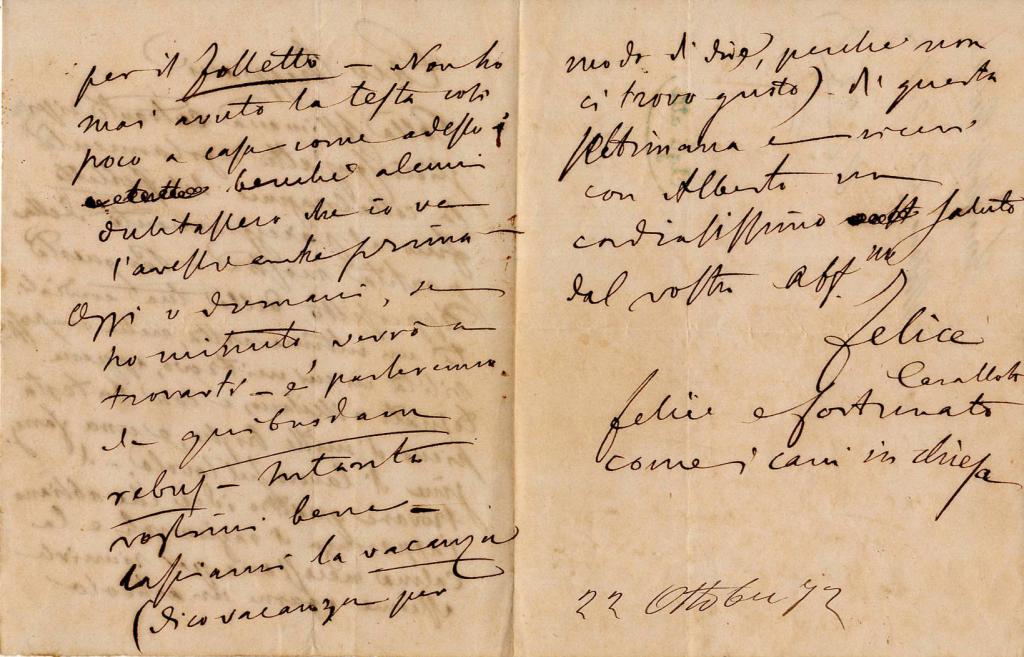 per il folletto – Non ho
mai avuto la testa così
poco a casa come adesso
benchè alcuni
dubitassero che io ve
l'avessi anche prima –
Oggi o domani, se
ho minuto verrò a
trovarti – e parleremo
de quibusdam
rebus – Intanto
bene –
lasciami la vacanza
(dico vacanza per
modo di dire, perchè non
ci trovo gusto) di questa
settimana e ricevi
con Alberto un
cordialissimo saluto
dal vostro aff.mo
Felice
Cavallotti
felice e fortunato
come i cani in chiesa
22 Ottobre 72